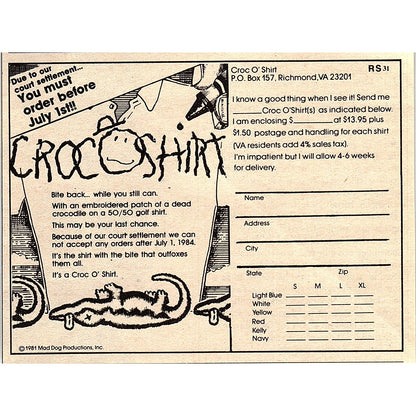 Due to our
court settlement...
You must
order before
July 1st!!
CROC O'SHIRT
Bite back... while you still can.
With an embroidered patch of a dead
crocodile on a 50/50 golf shirt.
This may be your last chance.
Because of our court settlement we can
not accept any orders after July 1, 1984.
It's the shirt with the bite that outfoxes
them all.
It's a Croc O' Shirt.
©1981 Mad Dog Productions, Inc.
Croc O' Shirt RS31
P.O. Box 157, Richmond, VA 23201
I know a good thing when I see it! Send me
____Croc O'Shirt(s) as indicated below.
I am enclosing $________at $13.95 plus
$1.50 postage and handling for each shirt
(VA residents add 4% sales tax).
I'm impatient but I will allow 4-6 weeks
for delivery.
Name
Address
City
State Zip
S M L XL
Light Blue
White
Yellow
Red
Kelly
Navy